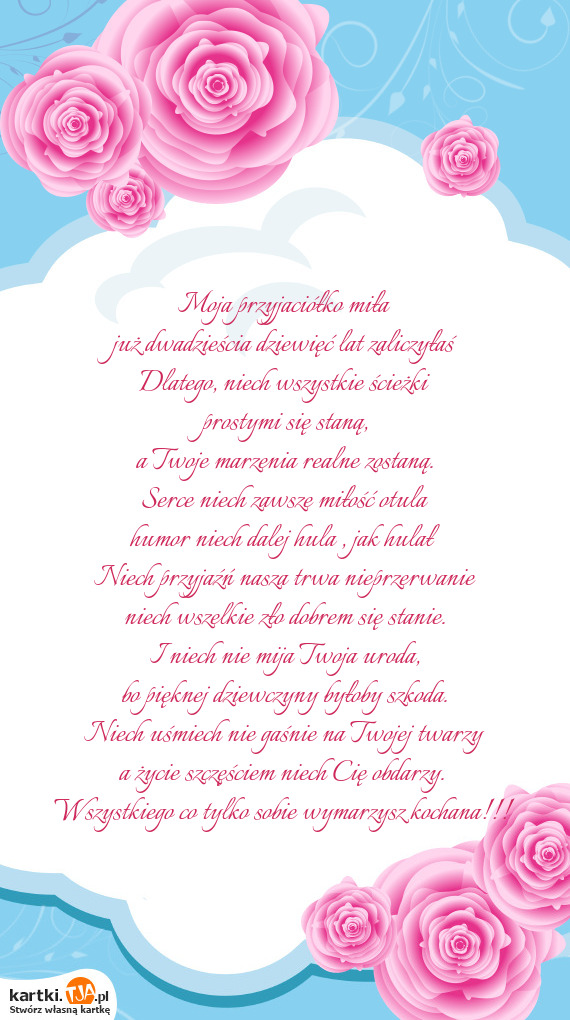 Moja przyjaciółko miła
już dwadzieścia dziewięć lat zaliczyłaś
Dlatego, niech wszystkie ścieżki
prostymi się staną,
a Twoje marzenia realne zostaną.
Serce niech zawsze miłość otula
humor niech dalej hula , jak hulał
Niech przyjaźń nasza trwa nieprzerwanie
niech wszelkie zło dobrem się stanie.
I niech nie mija Twoja uroda,
bo pięknej dziewczyny byłoby szkoda.
Niech uśmiech nie gaśnie na Twojej twarzy
a życie szczęściem niech Cię obdarzy.
Wszystkiego co tylko sobie wymarzysz kochana!!!
kartki.TJA.pl
Stwórz własną kartkę